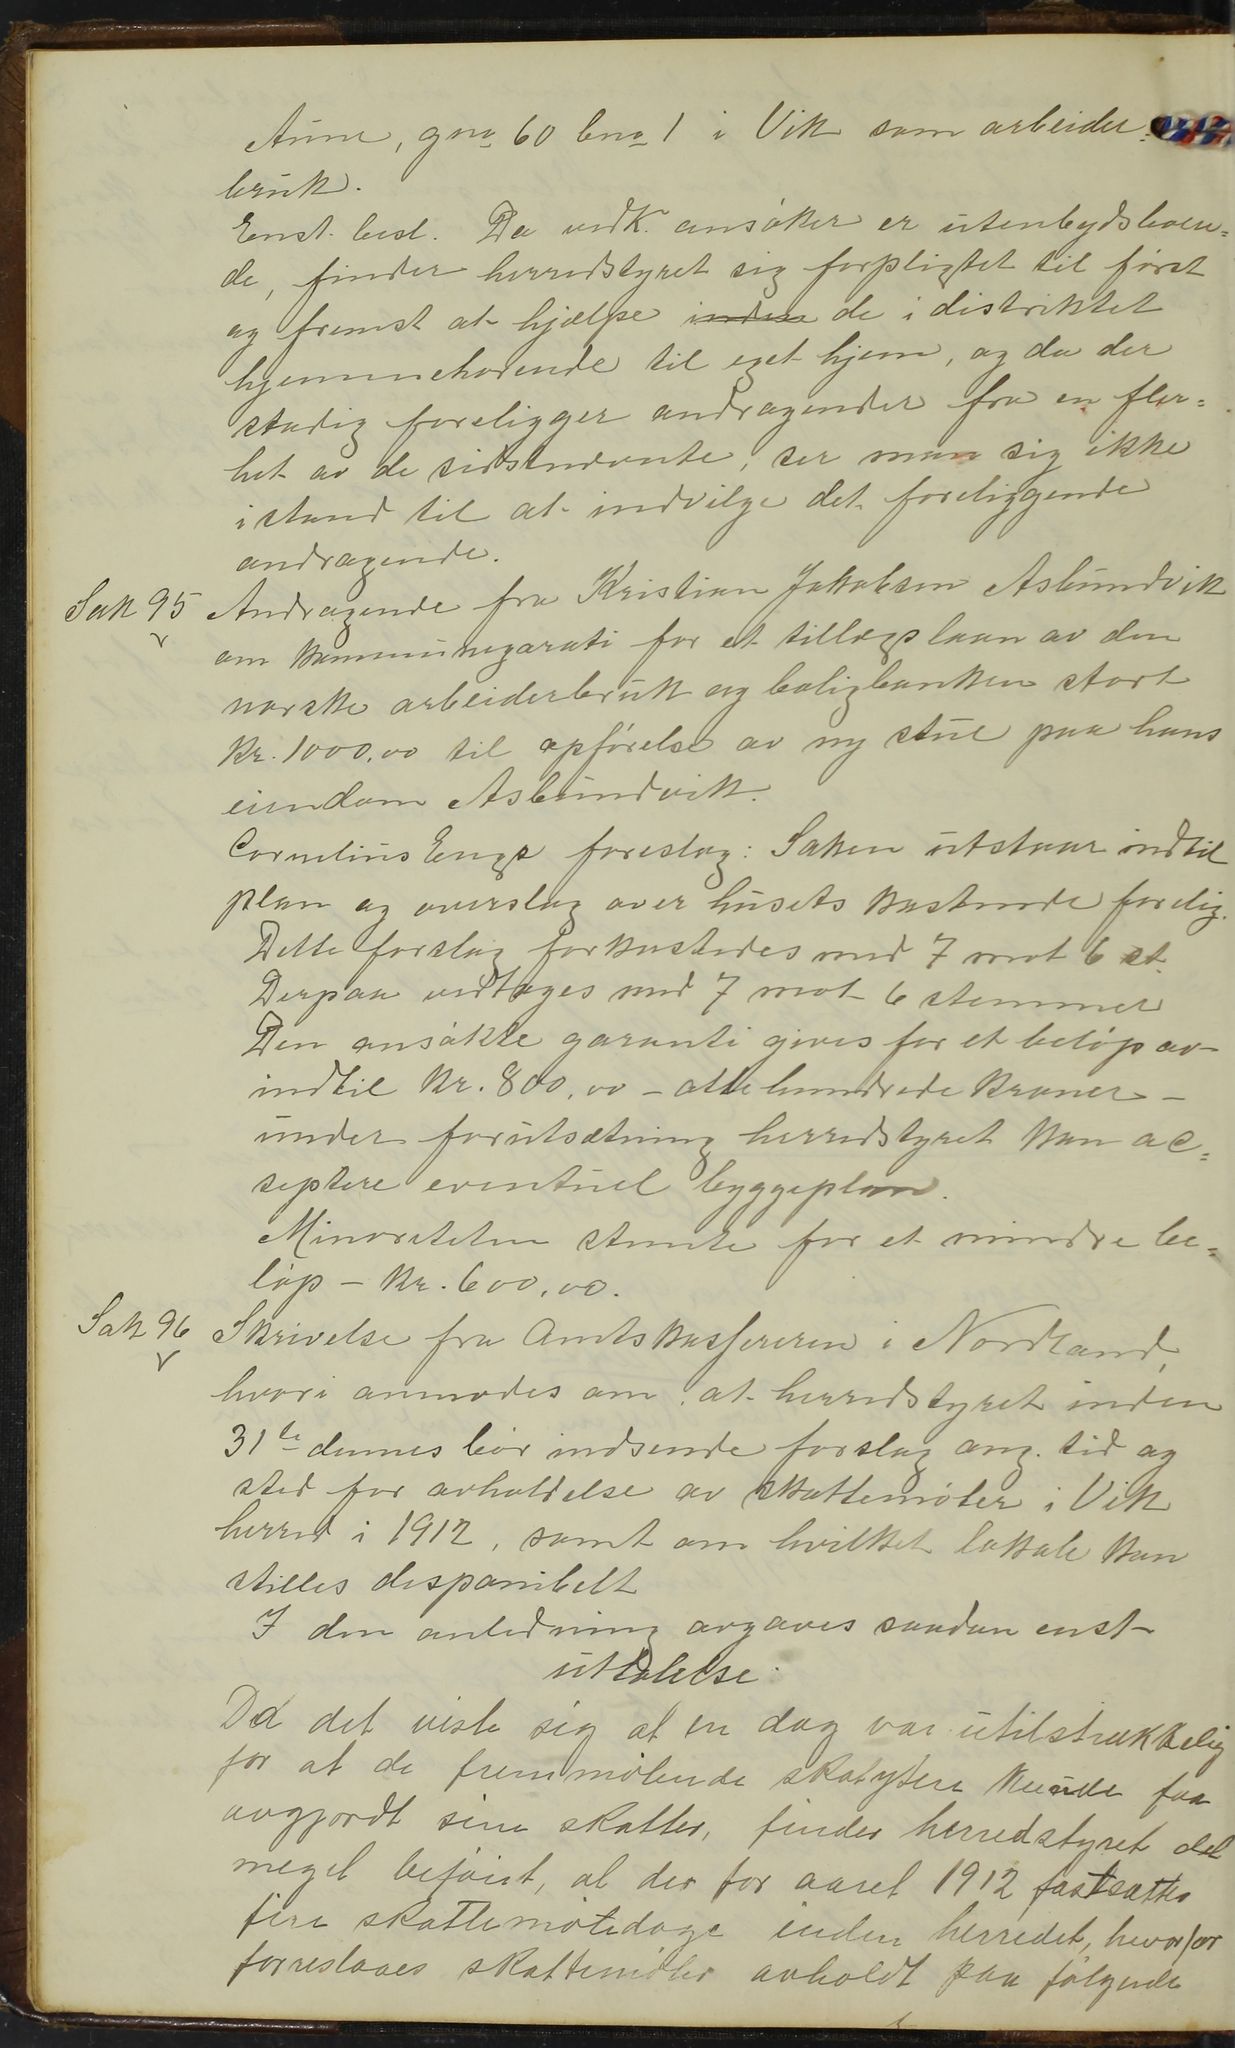 Aune, gno 60 bno 1 i Vik som arbeider-
bruk.
Enst. besl. Da vedk. ansøker er utenbydsboen=
de, finder herredstyret sig forpligtet til først
og fremst at hjælpe inden de i distriktet
hjemmehørende til eget hjem, og da der
stadig foreligger andragender fra en fler=
het av de sidstnævnte, ser man sig ikke
istand til at indvilge det foreliggende
andragende.
Sak 95 Andragende fra Kristian Jakobsen Asbundvik
om kommunegarati for et tillægslaan av den
norske arbeiderbruk og boligbanken stort
kr. 1000,00 til opførelse av ny stue paa hans
eiendom Asbundvik.
Cornelius Enges foreslog: Saken utstaar indtil
plan og overslag over husets kostende forelig.
Dette forslag forkastedes med 7 mot 6 st.
Derpaa vedtoges med 7 mot 6 stemmer
Den ansøkte garanti gives for et beløp av
indtil kr. 800,00 - otte hundrede kroner -
under forutsætning herredstyret kan ac=
septere eventuel byggeplan.
Minoriteten stemte for et mindre be=
løp - kr. 600,00.
Sak 96 Skrivelse fra Amtskassereren i Nordland,
hvori anmodes om at herredstyret inden
31te dennes bør indsende forslag ang. tid og
sted for avholdelse av skattemøter i Vik
herred i 1912, samt om hvilket lokale kan
stilles disponibelt
I den anledning avgaves saadan enst
uttalelse:
Da det viste sig at en dag var utilstrækkelig
for at de fremmøtende skatydere kunde faa
avgjordt sine skatter, finder herredstyret det
meget beføiet, at der for aaret 1912 fastsættes
fire skattemøtedage inden herredet, hvorfor
forreslaaes skattemøter avholdt paa følgende